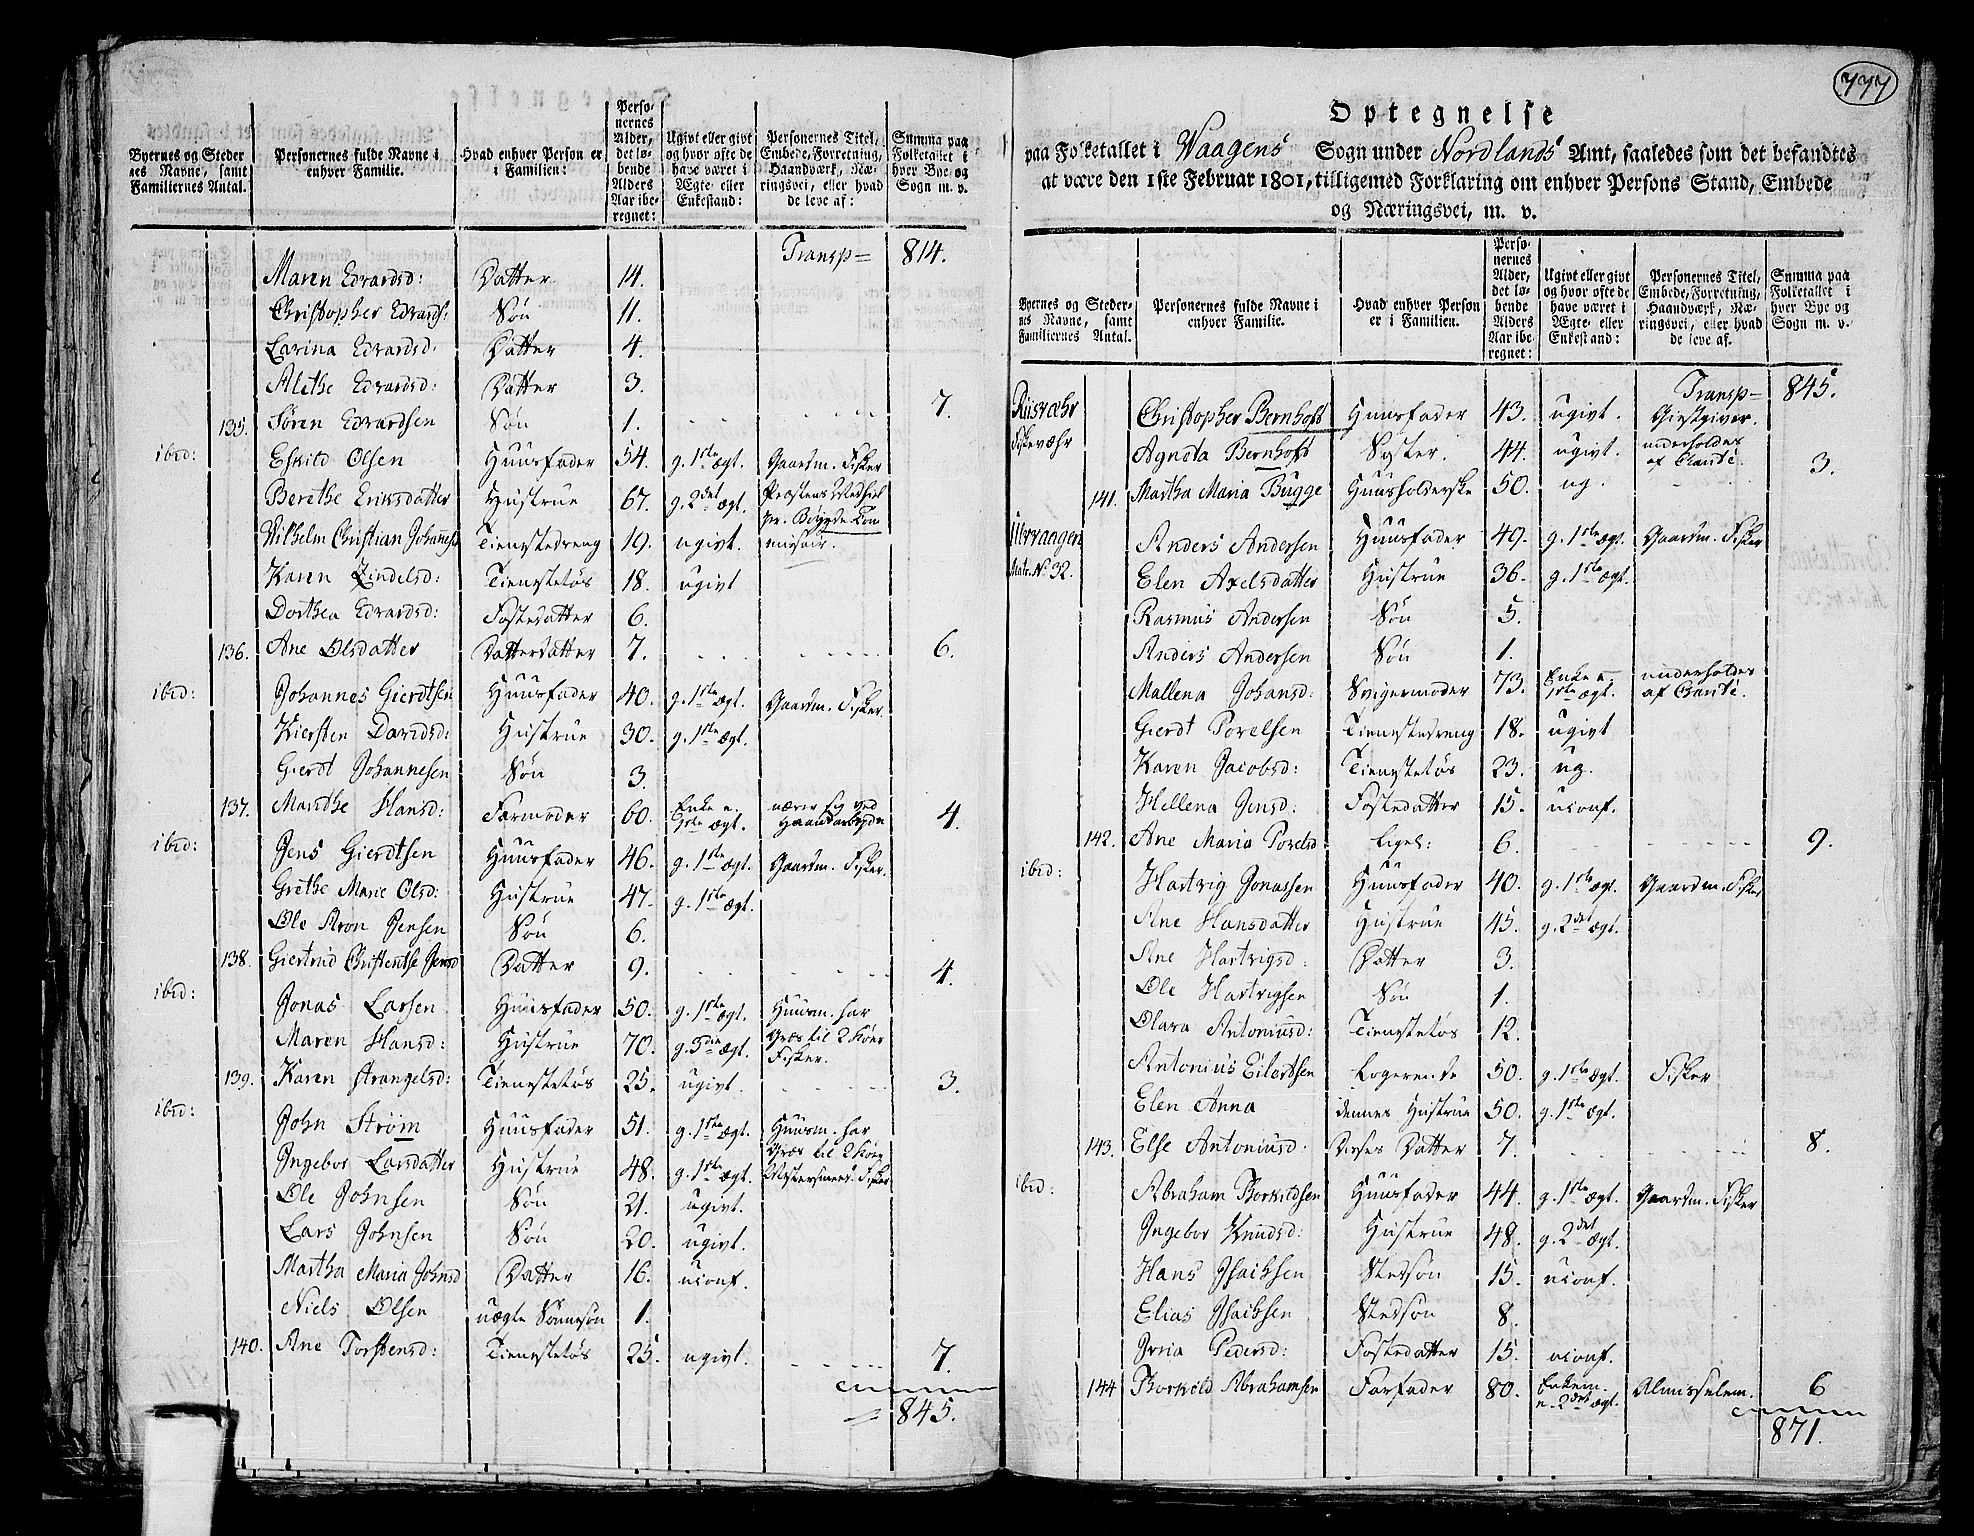 Byernes og Steder nes Navne, samt Familiernes Antal. | Personernes fulde Navne i enhver Familie. | Hvad enhver Person er i Familien: | Personernes Alder, det løbende Alders Aar iberegnet: | Ugivt eller givt og hvor ofte de have været i Ægte- eller Enkestand: | Personernes Titel, Embede, Forretning, Haandværk, Næringsvei, eller hvad de leve af: | Summa paa Folketallet i hver Bye og Sogn m. v.
Transp= 814.
Maren Edvardsd: Datter 14.
Christopher Edvards: Søn 11.
Larina Edvardsd: Datter 4.
Alethe Edvardsd: Datter 3.
135. Søren Edvardsen Søn 1. 7.
ibid: Eskild Olsen Huusfader 54. g. 1ste ægt. Gaardm. Fisker
Berethe Eriksdatter Hustrue 67. g. 2det ægt. Præstens Medhiel
pr. Bøygde Com
Vilhelm Christian Johannes Tienestedreng 19. ugivt. missair.
Karen Zindelsd: Tienestetøs 18. ugivt
Dorthea Edvardsd: Fostedatter 6.
136. Ane Olsdatter Datterdatter 7. 6.
ibid: Johannes Gierdtsen Huusfader 40. g. 1ste ægt. Gaardm. Fisker.
Kiersten Davidsd: Hustrue 30. g. 1ste ægt.
Gierdt Johannesen Søn 3.
137. Marithe Hansd: Farmoder 60. Enke e. 1ste ægt. nærer sig ved Haandarbeyde 4.
ibid: Jens Gierdtsen Huusfader 46. g. 1ste ægt. Gaardm. Fisker.
Grethe Marie Olsd: Hustrue 47. g. 1ste ægt.
Ole Aron Jensen Søn 6.
138. Giertrud Christentse Jensd Datter 9. 4.
ibid: Jonas Larsen Huusfader 50. g. 1ste ægt. Huusm. har
Maren Hansd: Hustrue 70. g. 3die ægt. Græs til 2 Køer Fisker.
139. Karen Strangelsd: Tienestetøs 25. ugivt. 3.
ibid: John Strøm Huusfader 51. g. 1ste ægt. Huusm. har
Ingebor Larsdatter Hustrue 48. g. 1ste ægt. Græs til 2 Køer Fisker
Ole Johnsen Søn 21. ugivt.
Lars Johnsen Søn 20. ugivt.
Martha Maria Johnsd Datter 16. uconf.
Niels Olsen uægte Sønnesøn 1.
140. Ane Torstensd: Tienestetøs 25. ugivt. 7.
= 845.
777
Optegnelse
paa Folketallet i Vaagens Sogn under Nordlands Amt, saaledes som det befandtes
at være den 1ste Februar 1801, tilligemed Forklaring om enhver Persons Stand, Embede
og Næringsvei, m. v.
Byernes og Stedernes Navne, samt Familiernes Antal. | Personernes fulde Navne i enhver Familie. | Hvad enhver Person er i Familien. | Personernes Alder, det løbende Alders Aar iberegnet: | Ugivt eller givt og hvor ofte de have været i Ægte- eller Enkestand: | Personernes Titel, Embede, Forretning, Haandværk, Næringsvei, eller hvad de leve af. | Summa paa Folketallet i hver Bye og Sogn m. v.
Transp= 845.
Riisværhr Christopher Bernhoft Huusfader 43. ugivt. Giestgiver.
Fiskevæhr Agneta Bernhoft Søster. 44. ugivt. underholdes af 3.
141. Martha Maria Bugge Huusholderske 50. ug.
Anders Andersen Huusfader 49. g. 1ste ægt. Gaardm. Fisker
Matr. No 32. Elen Axelsdatter Hustrue 36. g. 1ste ægt.
Rasmus Andersen Søn 5.
Anders Andersen Søn 1.
Mallena Johansd: Svigermoder 73. Enke e. 1ste ægt. underholdes af
Gierdt Porelsen Tienestedreng 18. ugivt
Karen Jacobsd: Tienestetøs 23. ug.
Hellena Jensd: Fostedatter 15. uconf.
142. Ane Maria Porelsd Ligel: 6. 9.
ibid: Hartvig Jonassen Huusfader 40. g. 1ste ægt. Gaardm. Fisker
Ane Hansdatter Hustrue 45. g. 2det ægt.
Ane Hartvigsd: Datter 3.
Ole Hartvigsen Søn 1.
Olava Antoniusd: Tienestetøs 12.
Antonius Eilertsen Logerende 50. g. 1ste ægt. Fisker
Elen Anna dennes Hustrue 50. g. 1ste ægt.
143. Else Antoniusd: Deres Datter 7. 8.
ibid: Abraham Torkildsen Huusfader 44. g. 1ste ægt. Gaardm. Fisker
Ingebor Knudsd: Hustrue 48. g. 2det ægt.
Hans Isachsen Stedsøn 15. uconf.
Elias Isachsen Stedsøn 8.
Pedersd: Fostedatter 15. uconf.
144 Torkild Abrahamsen Farfader 80. Enkem. e. 2det ægt. Almisselem. 6
871.